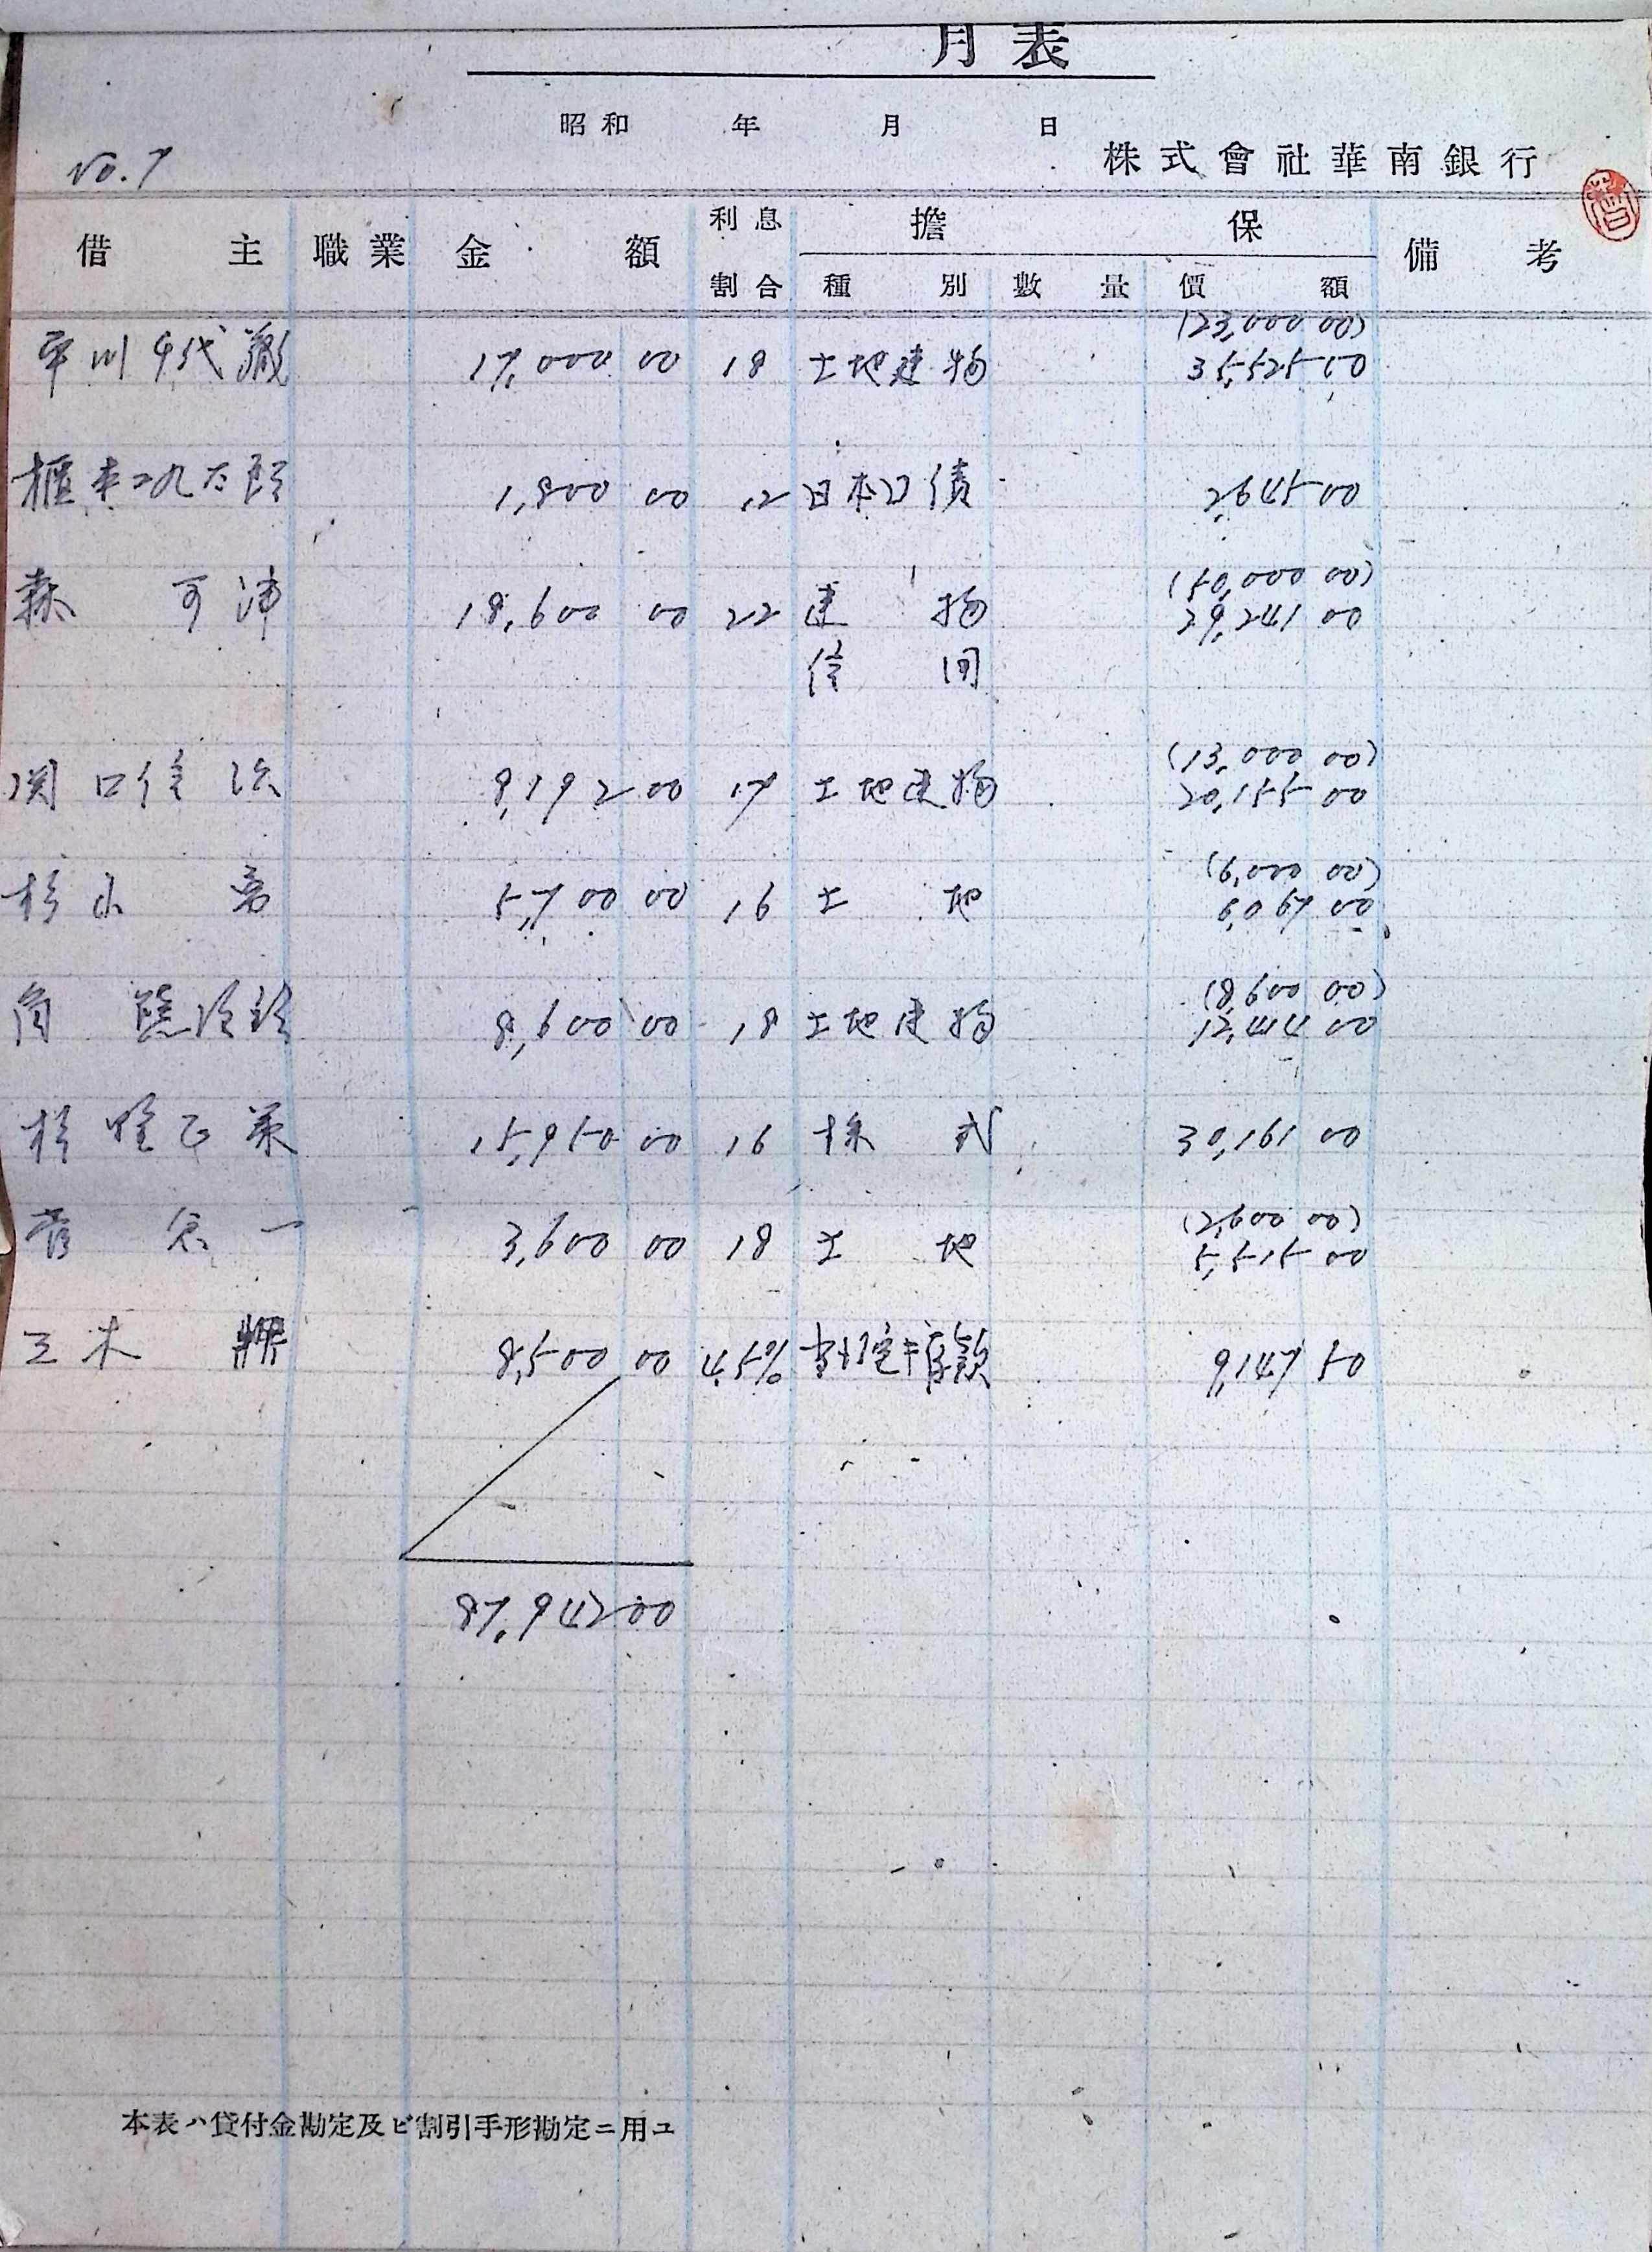 月表
昭和 年 月 日
No.7
株式會社華南銀行
借主 職業 金額 利息割合 擔保 備考
種別 數量 價額
(23,000 00)
平川千代藏 17,000 00 18 土地建物 35,525 00
1,800 00 12 日本口債 2,645 00
(50,000 00)
森 18,600 00 22 建物 29,241 00
信用
(13,000 00)
関口 9,192 00 17 土地建物 20,155 00
(6,000 00)
杉山 5,700 00 16 土地 6,067 00
(8,600 00)
8,600 00 18 土地建物 12,414 00
杉 15,950 00 16 株式 30,161 00
(2,600 00)
3,600 00 18 土地 5,515 00
三木 8,500 00 4.5% 9,147 50
87,942 00
本表ハ貸付金勘定及ビ割引手形勘定ニ用ユ